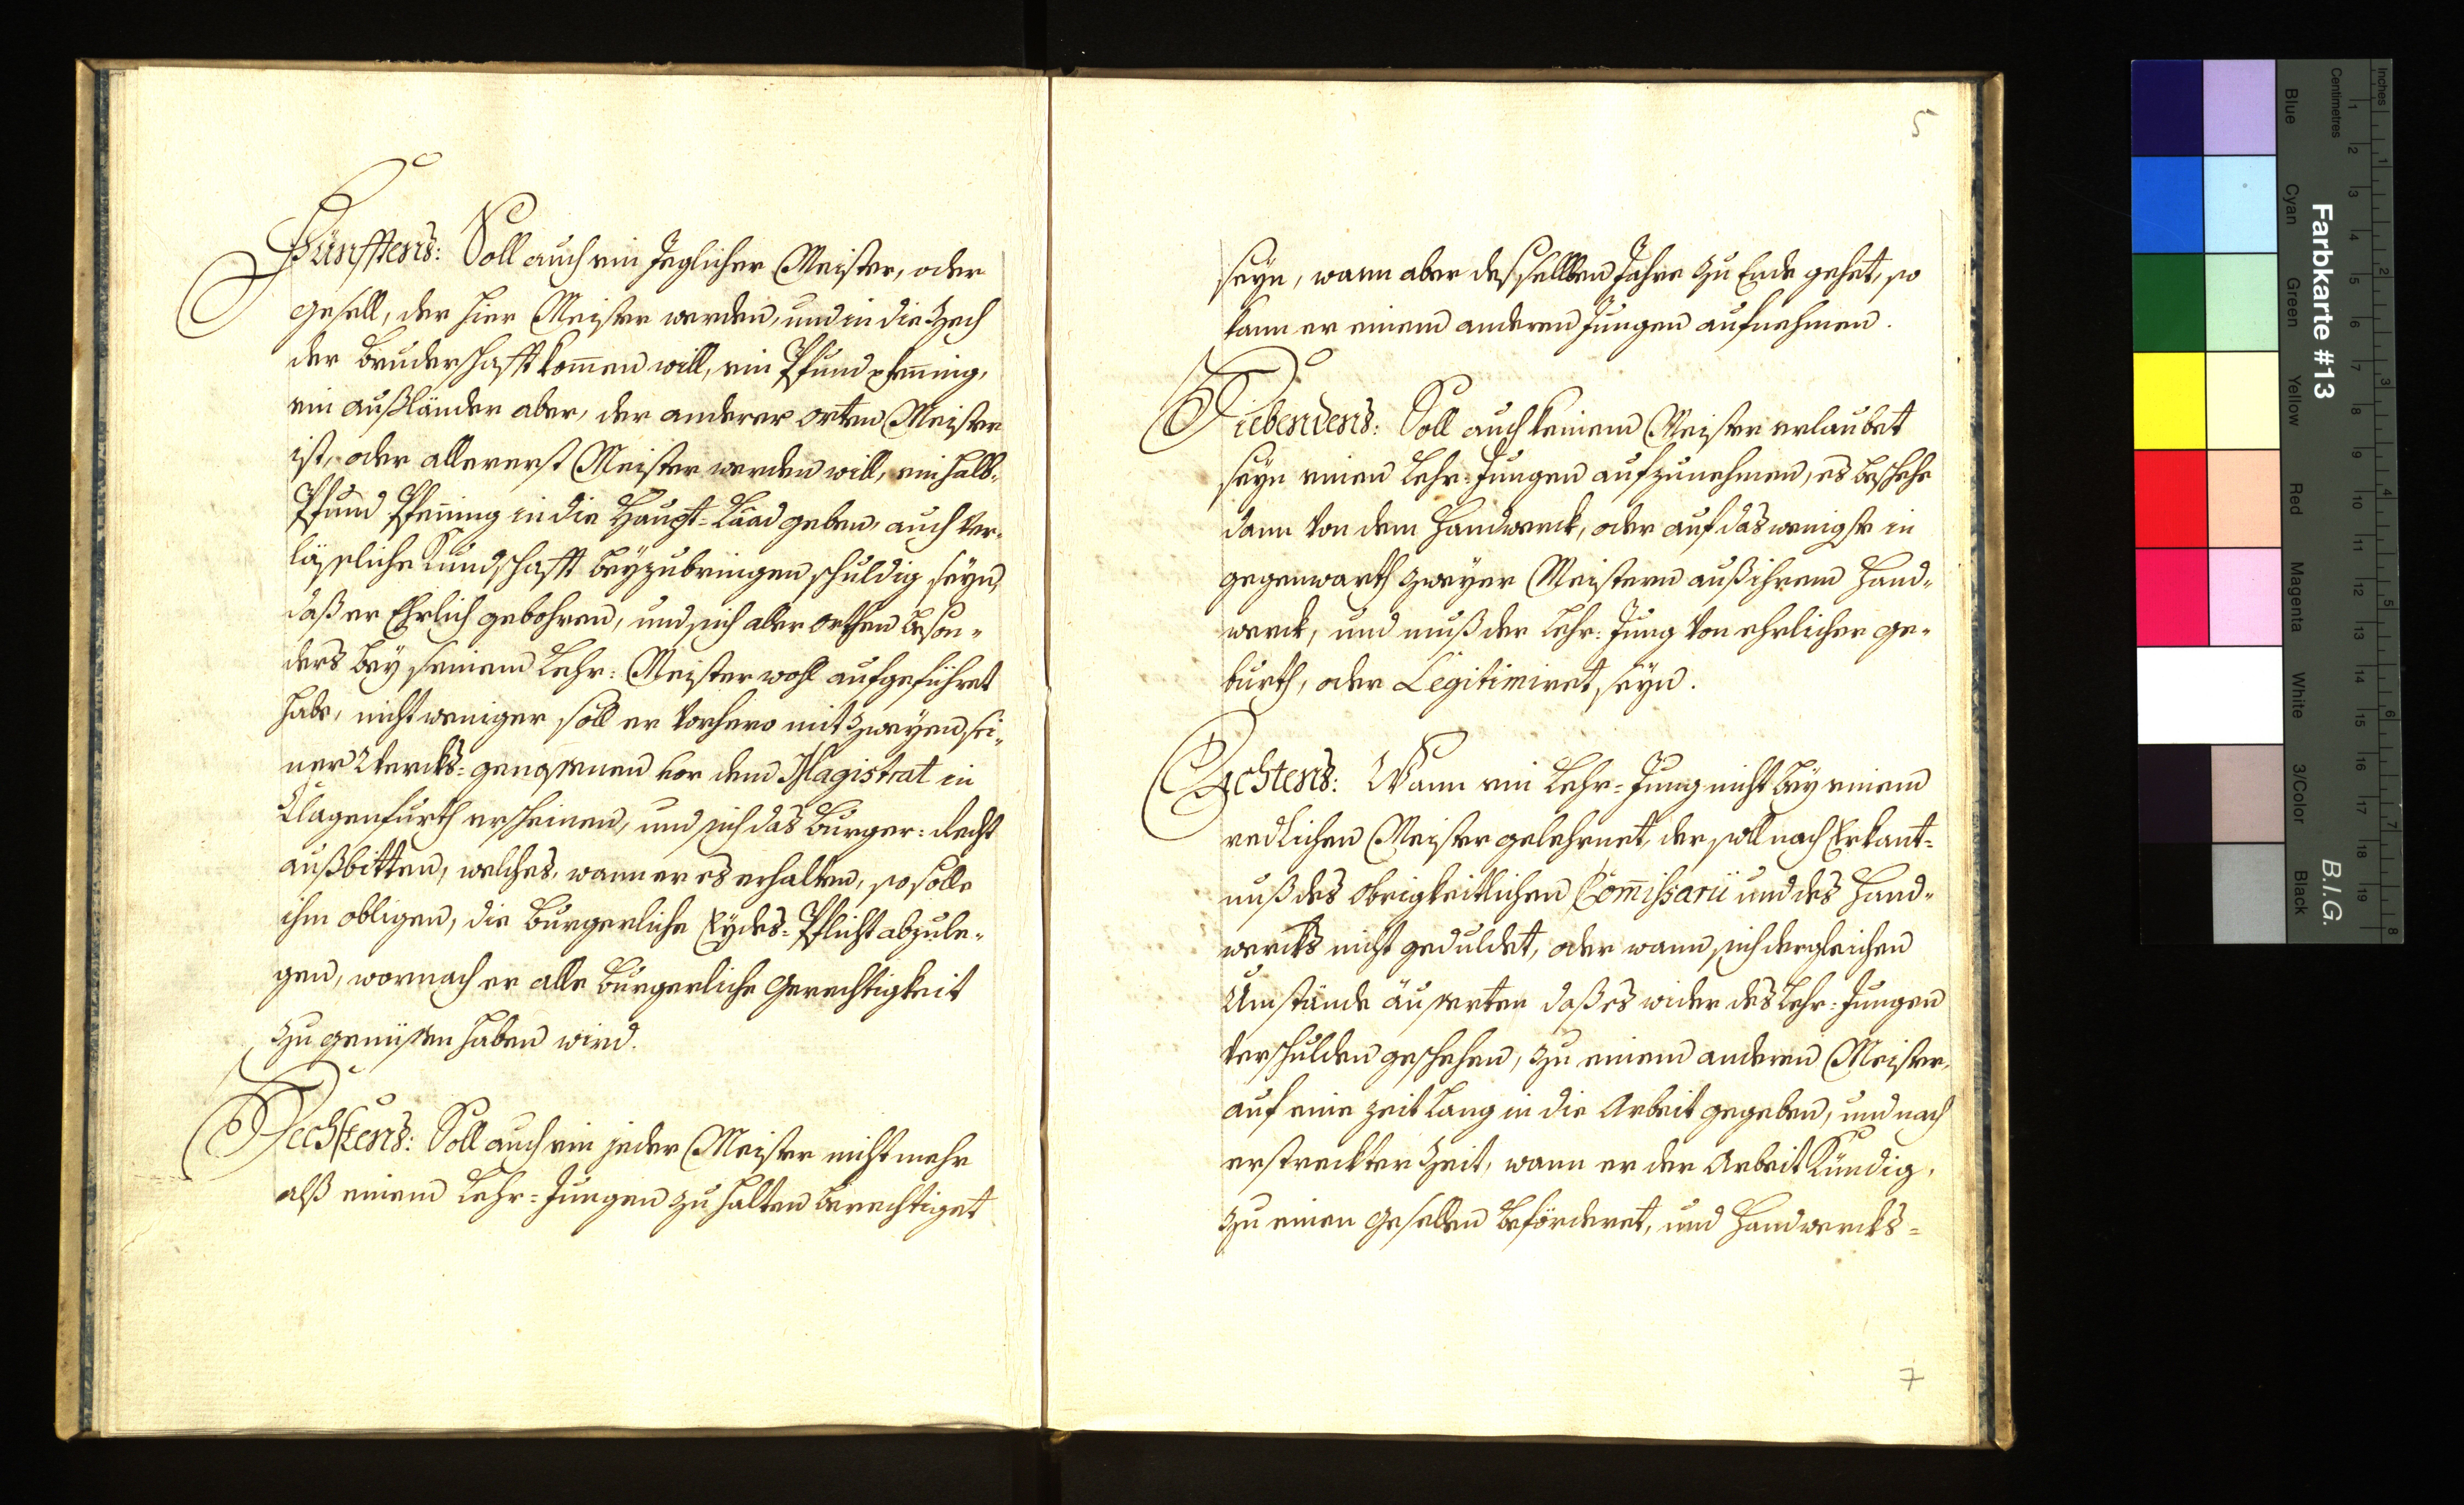 Fünfftens: Soll auch ein Jeglicher Meister, oder
gesell, der hier Meister werden, und in die Zech
der bruderschafft kom̄en will, ein Pfund pfen̄ing,
ein außländer aber, der anderer orten Meister
ist, oder allererst Meister werden will, ein halb-
Pfund Pfen̄ing in die Haupt-Laad geben, auch ver-
läßliche Kundschafft beyzubringen schuldig seyn,
daß er Ehrlich gebohren, und sich aller orthen beson-
ders bey seinem Lehr-Meister wohl aufgeführet
habe, nicht weniger soll er vorhero mit zweyen sei-
ner Wercks-genossenen vor dem Magistrat in
Clagenfurth erscheinen, und sich das burger-recht
außbitten, welches, wann er es erhalten, so solle
ihm obligen, die burgerliche Eydes-Pflicht abzule-
gen, wornach er alle burgerliche Gerechtigkeit
zu genüssen haben wird.
Sechstens: Soll auch ein jeder Meister nicht mehr
alß einem Lehr-Jungen zu halten berechtiget
5
seyn, wann aber desselben Jahre zu Ende gehet, so
kann er einem anderen Jungen aufnehmen.
Siebendens: Soll auch keinem Meister erlaubet
seyn einen Lehr-Jungen aufzunehmen, es beschehe
dann von dem Handwerck, oder auf das wenigste in
gegenwarth zweyer Meistern auß ihrem Hand-
werck, und muß der Lehr-Jung von ehrlicher ge-
burth, oder Legitimiret seyn.
Achtens: Wann ein Lehr-Jung nicht bey einem
redlichen Meister gelehrnet, der soll nach Erkant-
nuß des obrigkeitlichen Com̄issarii und des Hand-
wercks nicht geduldet, oder wann sich dergleichen
Umstände äusserten daß es wider des Lehr-Jungen
verschulden geschehen, zu einem anderen Meister,
auf eine zeit lang in die Arbeit gegeben, und nach
erstreckter Zeit, wann er der Arbeit Kündig,
zu einen gesellen beförderet, und Handwercks-
7
Farbkarte #13
B.I.G.
Inches
Centimetres
Blue
Cyan
Green
Yellow
Red
Magenta
White
3/Color
Black